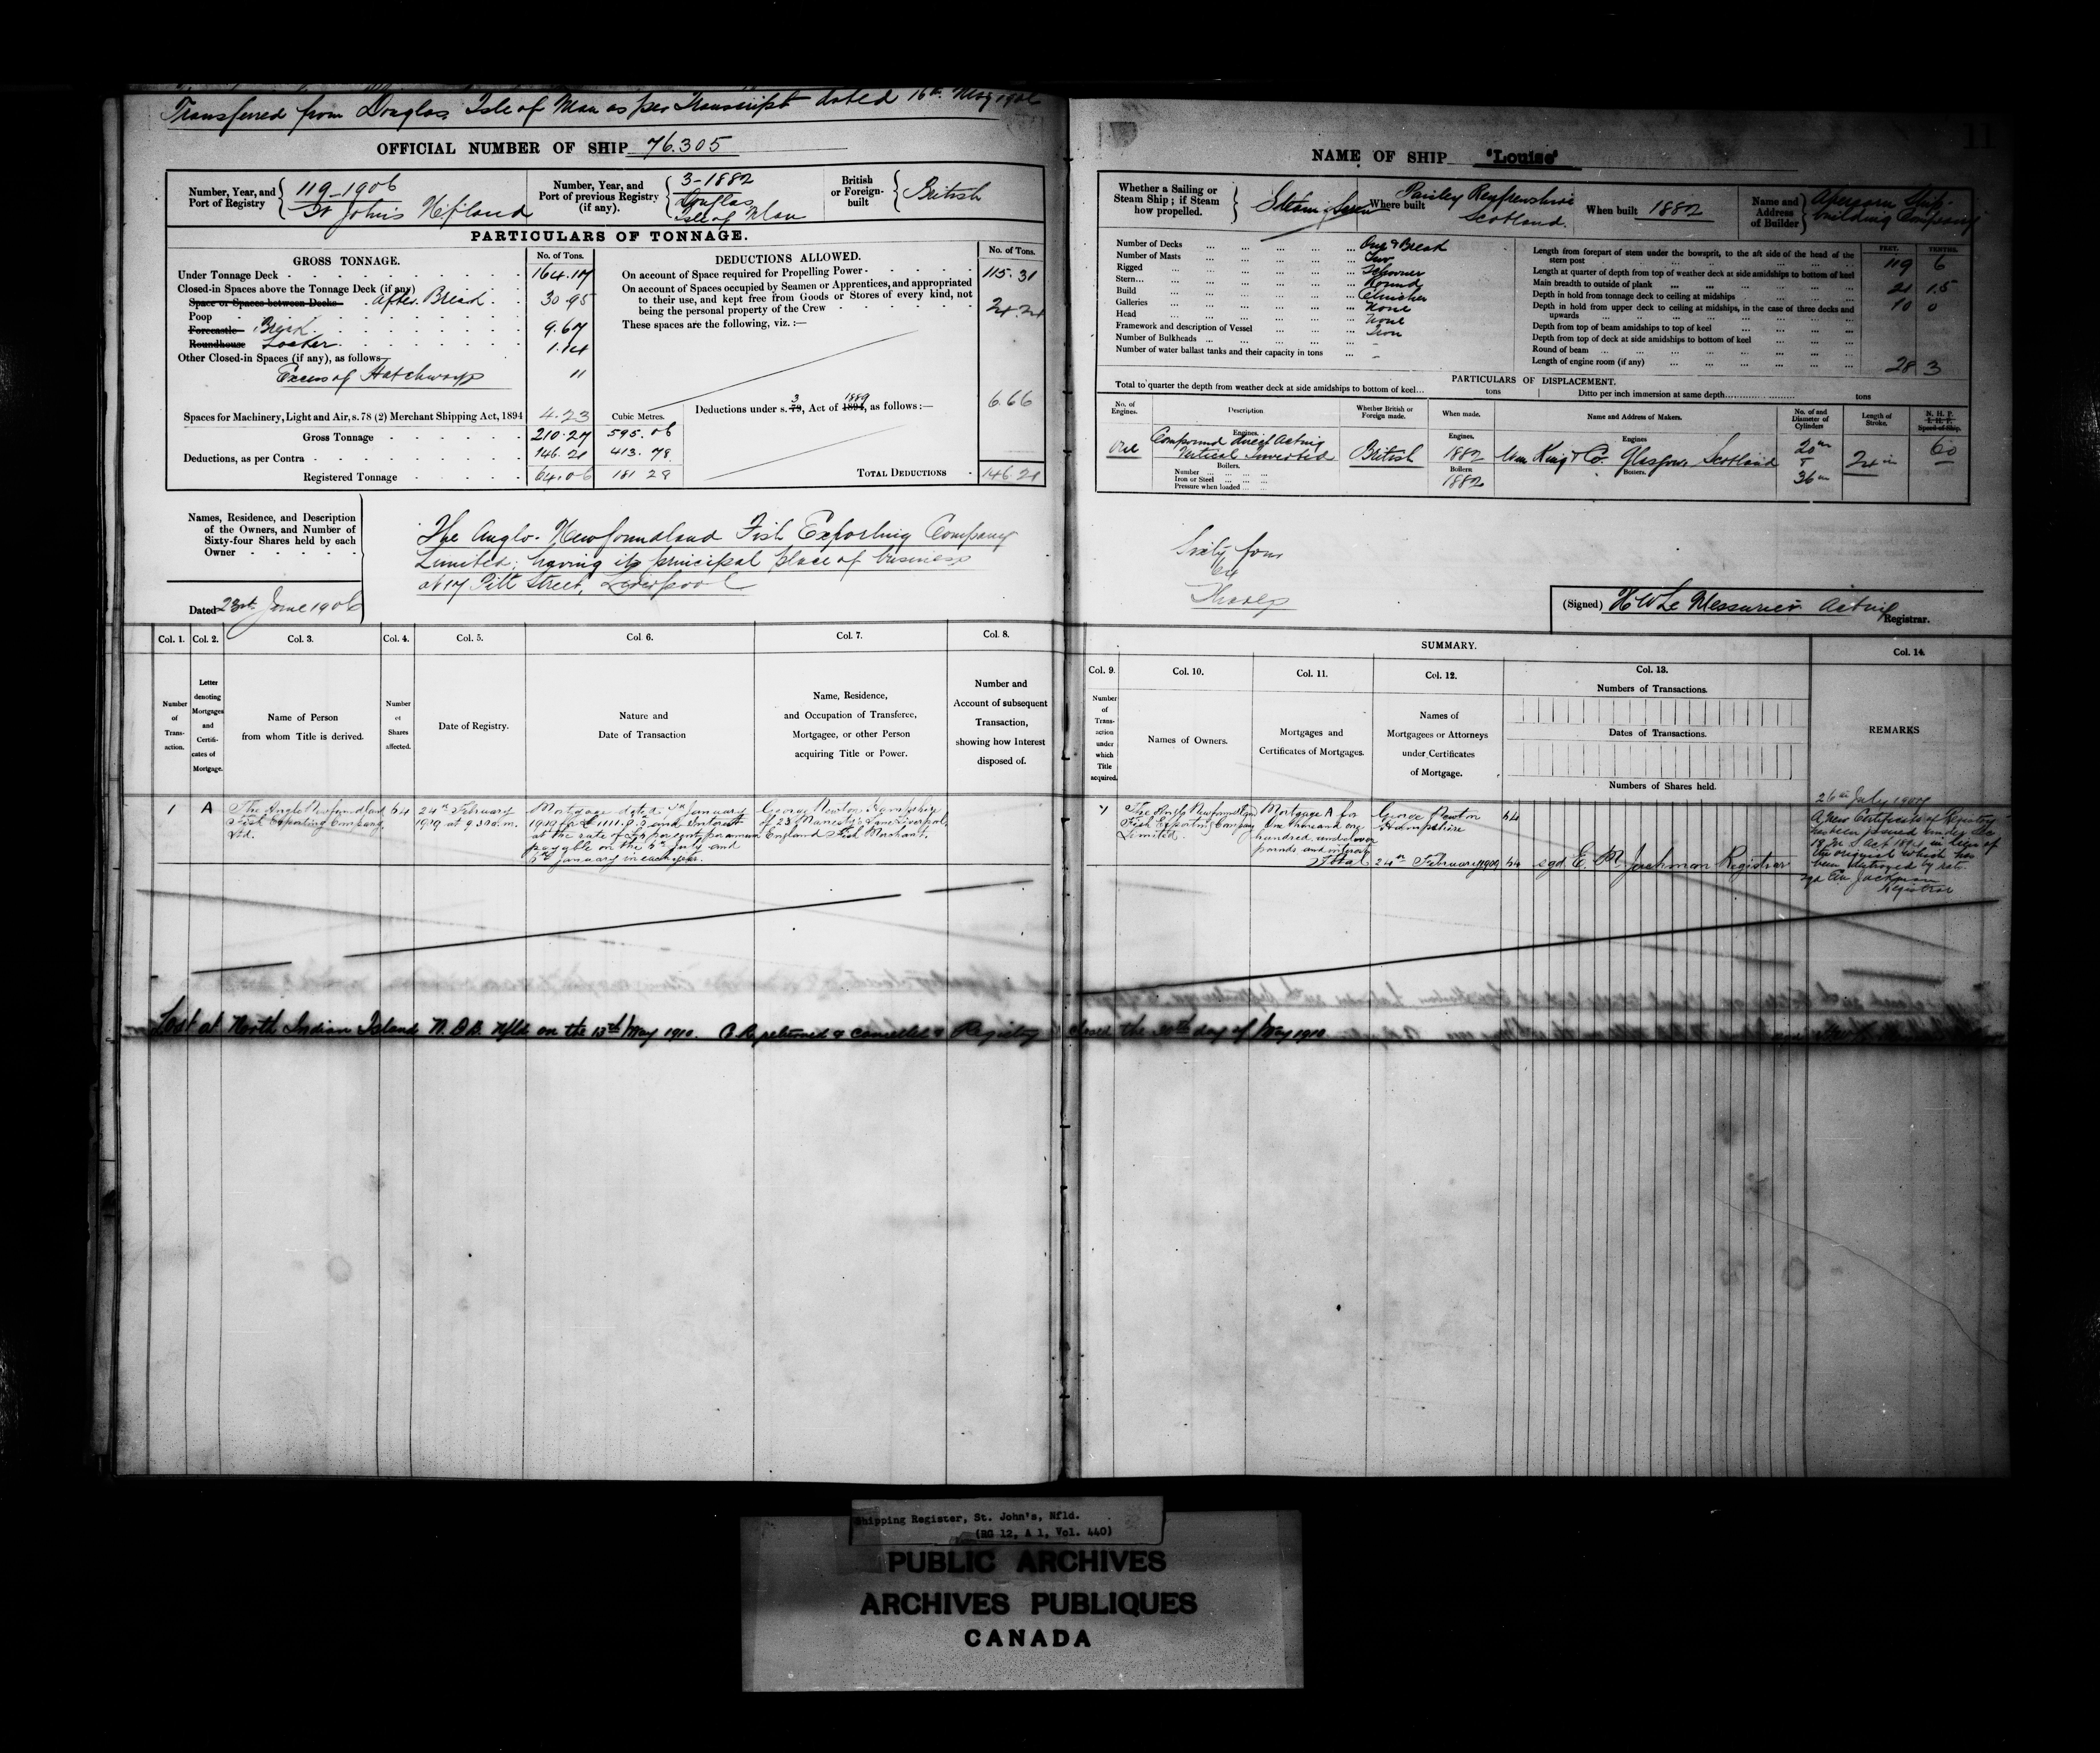 Transferred from Douglas Isle of Man as per Transcript dated 16th May 1906
OFFICIAL NUMBER OF SHIP 76.305
Number, Year, and Port of Registry
119-1906
St John's Nfland
Number, Year, and Port of previous Registry (if any).
3-1882
Douglas
Isle of Man
British or Foreign-built
British
PARTICULARS OF TONNAGE.
GROSS TONNAGE.
No. of Tons.
Under Tonnage Deck 164.17
Closed-in Spaces above the Tonnage Deck (if any)
Space or Spaces between Decks After Break 30.95
Poop
Forecastle Break 9.67
Roundhouse Locker 1.14
Other Closed-in Spaces (if any), as follows—
Excess of Hatchways 11
Spaces for Machinery, Light and Air, s. 78 (2) Merchant Shipping Act, 1894 4.23
Cubic Metres.
Gross Tonnage 210.27 595.06
Deductions, as per Contra 146.21 413.78
Registered Tonnage 64.06 181 28
DEDUCTIONS ALLOWED.
No. of Tons.
On account of Space required for Propelling Power 115.31
On account of Spaces occupied by Seamen or Apprentices, and appropriated
to their use, and kept free from Goods or Stores of every kind, not
being the personal property of the Crew 24.24
These spaces are the following, viz. :—
3 1889
Deductions under s. 79, Act of 1894, as follows :— 6.66
TOTAL DEDUCTIONS 146.21
Names, Residence, and Description
of the Owners, and Number of
Sixty-four Shares held by each
Owner
The Anglo-Newfoundland Fish Exporting Company
Limited, having its principal place of business
at 17 Pitt Street, Liverpool
Dated 23rd June 1906
Col. 1. Col. 2. Col. 3. Col. 4. Col. 5. Col. 6. Col. 7. Col. 8.
Number of Transaction.
Letter denoting Mortgages and Certificates of Mortgage.
Name of Person from whom Title is derived.
Number of Shares affected.
Date of Registry.
Nature and Date of Transaction
Name, Residence, and Occupation of Transferee, Mortgagee, or other Person acquiring Title or Power.
Number and Account of subsequent Transaction, showing how Interest disposed of.
1 A
The Anglo Newfoundland
Fish Exporting Company
Ltd.
64
24th February
1909 at 9.30 a.m.
Mortgage dated January
1909 for £1111.0.0 and interest
at the rate of per cent per annum
payable on the July and
January in each year.
George Newton Hampshire
of 23 Manesty's Lane Liverpool
England Fish Merchant.
Lost at North Indian Island N. D. B. Nfld on the 13th May 1910. C. R. returned & cancelled & Registry closed the 30th day of May 1910
11
NAME OF SHIP "Louise"
Whether a Sailing or Steam Ship ; if Steam how propelled.
Steam Screw
Where built
Paisley Renfrewshire
Scotland.
When built 1882
Name and Address of Builder
Abercorn Ship-
building Company
Number of Decks One & Break
Number of Masts Two
Rigged Schooner
Stern Round
Build Clincher
Galleries None
Head None
Framework and description of Vessel Iron
Number of Bulkheads -
Number of water ballast tanks and their capacity in tons -
FEET. TENTHS.
Length from forepart of stem under the bowsprit, to the aft side of the head of the
stern post 119 6
Length at quarter of depth from top of weather deck at side amidships to bottom of keel
Main breadth to outside of plank 21 1.5
Depth in hold from tonnage deck to ceiling at midships 10 0
Depth in hold from upper deck to ceiling at midships, in the case of three decks and
upwards
Depth from top of beam amidships to top of keel
Depth from top of deck at side amidships to bottom of keel
Round of beam
Length of engine room (if any) 28 3
PARTICULARS OF DISPLACEMENT.
Total to quarter the depth from weather deck at side amidships to bottom of keel... tons
Ditto per inch immersion at same depth... tons
No. of Engines. Description Whether British or Foreign made. When made. Name and Address of Makers. No. of and Diameter of Cylinders Length of Stroke. N. H. P. I. H. P. Speed of Ship.
One
Engines.
Compound direct Acting
Vertical Inverted
Boilers.
Number
Iron or Steel
Pressure when loaded
British
Engines.
1882
Boilers
1882
Engines
Wm King & Co. Glasgow, Scotland
Boilers.
20 in
36 in
24 in
60
Sixty four
64
Shares
(Signed) H W Le Messurier Acting Registrar.
SUMMARY.
Col. 9. Col. 10. Col. 11. Col. 12. Col. 13. Col. 14.
Number of Transaction under which Title acquired.
Names of Owners.
Mortgages and Certificates of Mortgages.
Names of Mortgagees or Attorneys under Certificates of Mortgage.
Numbers of Transactions.
Dates of Transactions.
Numbers of Shares held.
REMARKS
The Anglo Newfoundland
Fish Exporting Company
Limited
Mortgage A for
One thousand one
hundred and eleven
pounds and interest
George Newton
Hampshire
64
Total 24th February 1909 64 sgd E. M. Jackman Registrar
26th July 1907
A New Certificate of Registry
has been issued under Sec
in lieu of
the original which has
been destroyed by rats
sgd E M Jackman
Registrar
Shipping Register, St. John's, Nfld.
(RG 12, A 1, Vol. 440)
PUBLIC ARCHIVES
ARCHIVES PUBLIQUES
CANADA